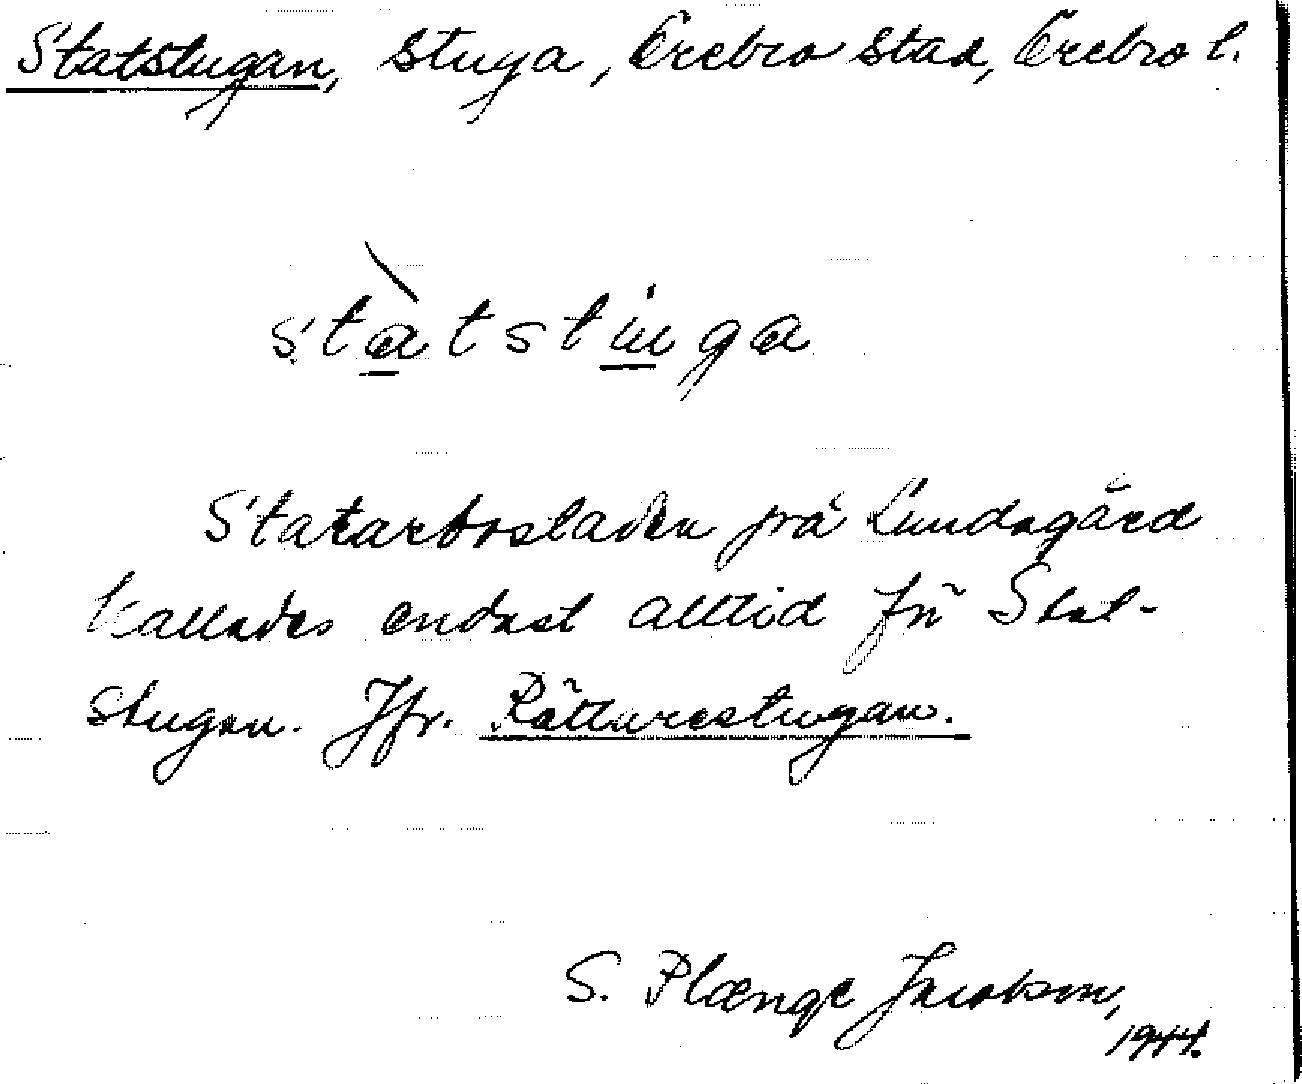 Statstugan, stuga, Örebro stad, Örebro l.
stàtstuga
Statarbostaden på Lundagård
kallades endast alltid för Stat-
stugan. Jfr. Rättarestugan.
S. Plænge Jacobson,
1944.